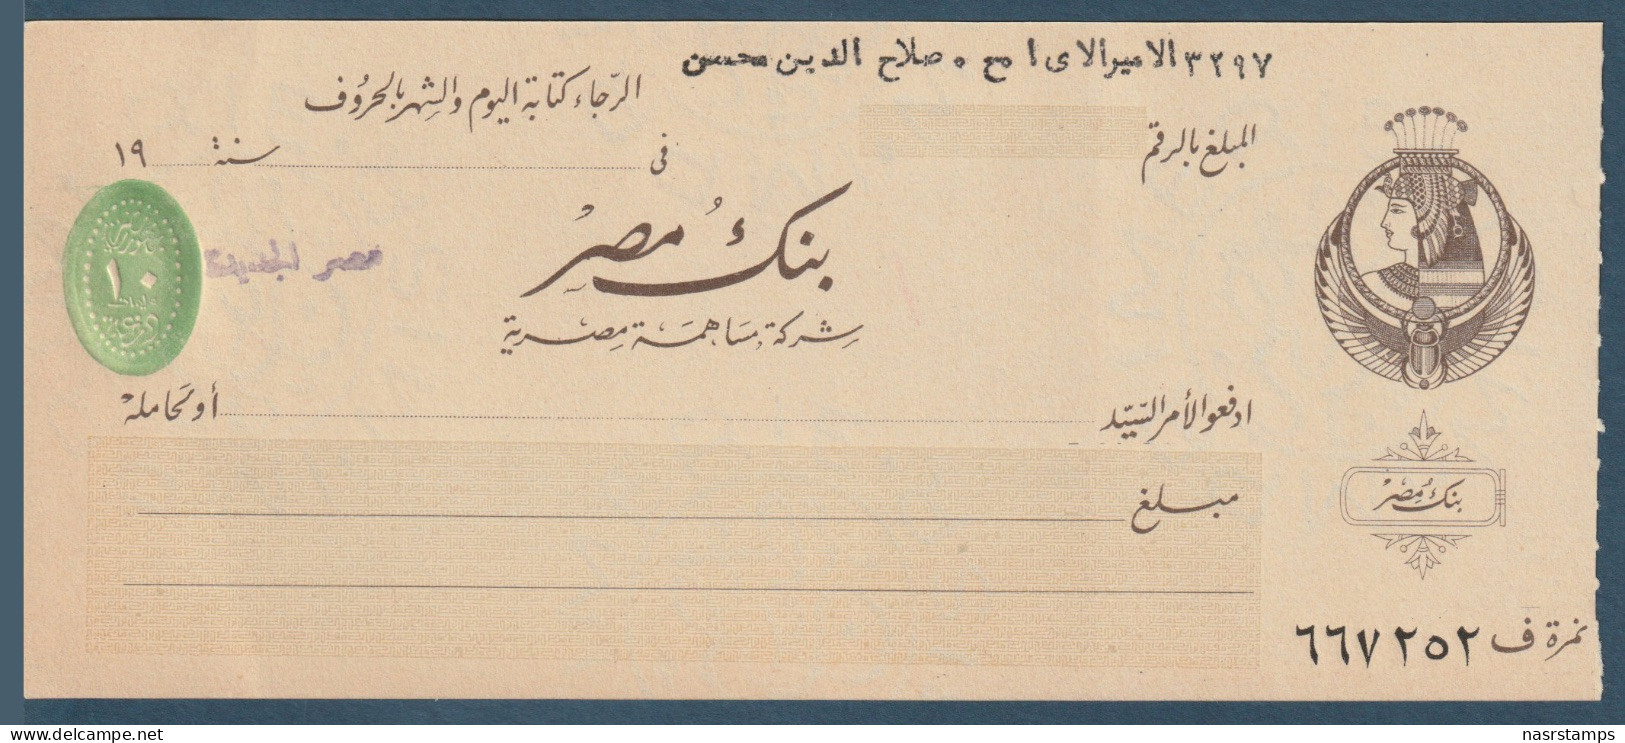 ٣٢٩٧ الاميرالاى ا مح ٠ صلاح الدين محسن
الرّجاء كتابة اليوم والشهر بالحروف
المبلغ بالرقم
فى سنة ١٩
بنك مصر
شركة مساهمة مصرية
مصر الجديدة
١٠
ادفعوا لأمر السيّد أو لحامله
مبلغ
بنك مصر
نمرة ف ٦٦٧٢٥٢
nasrstamps
delcampe.net